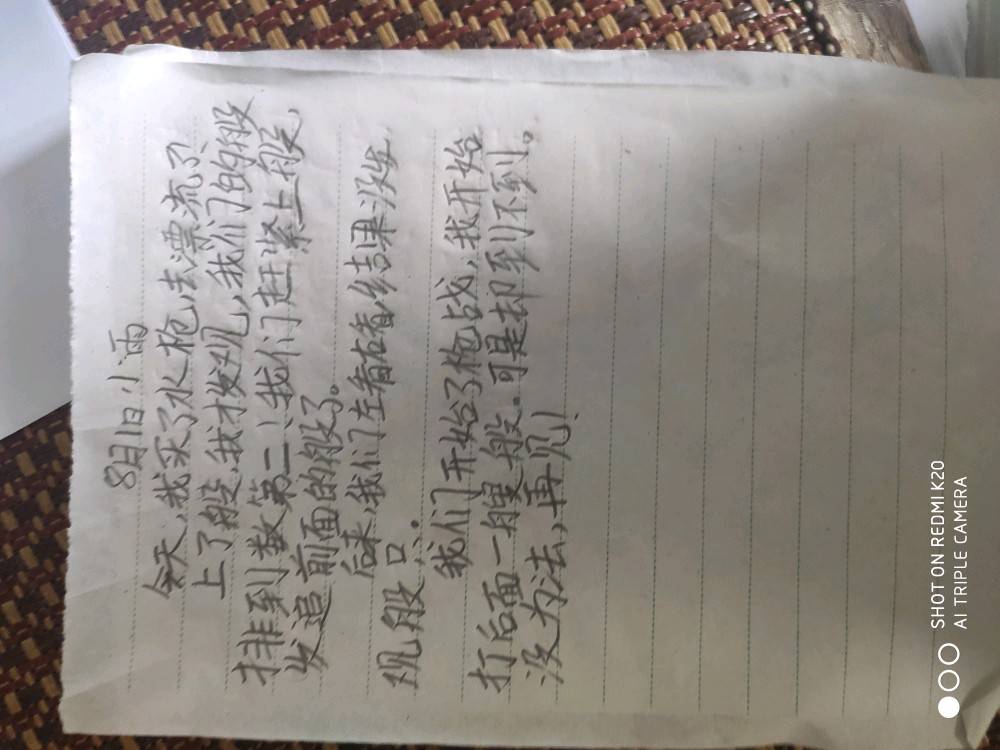 8月1日 小雨
今天,我买了水枪,去漂流了,
上了般,我才发现,我们的般
排到数第二!我们赶紧上般,
发追前面的般了。
后来,我们左看右看,结果没发
现般只。
我们开始了枪战,我开始
打后面一艘般。可是却到不到。
没为法,再见!
SHOT ON REDMI K20
AI TRIPLE CAMERA